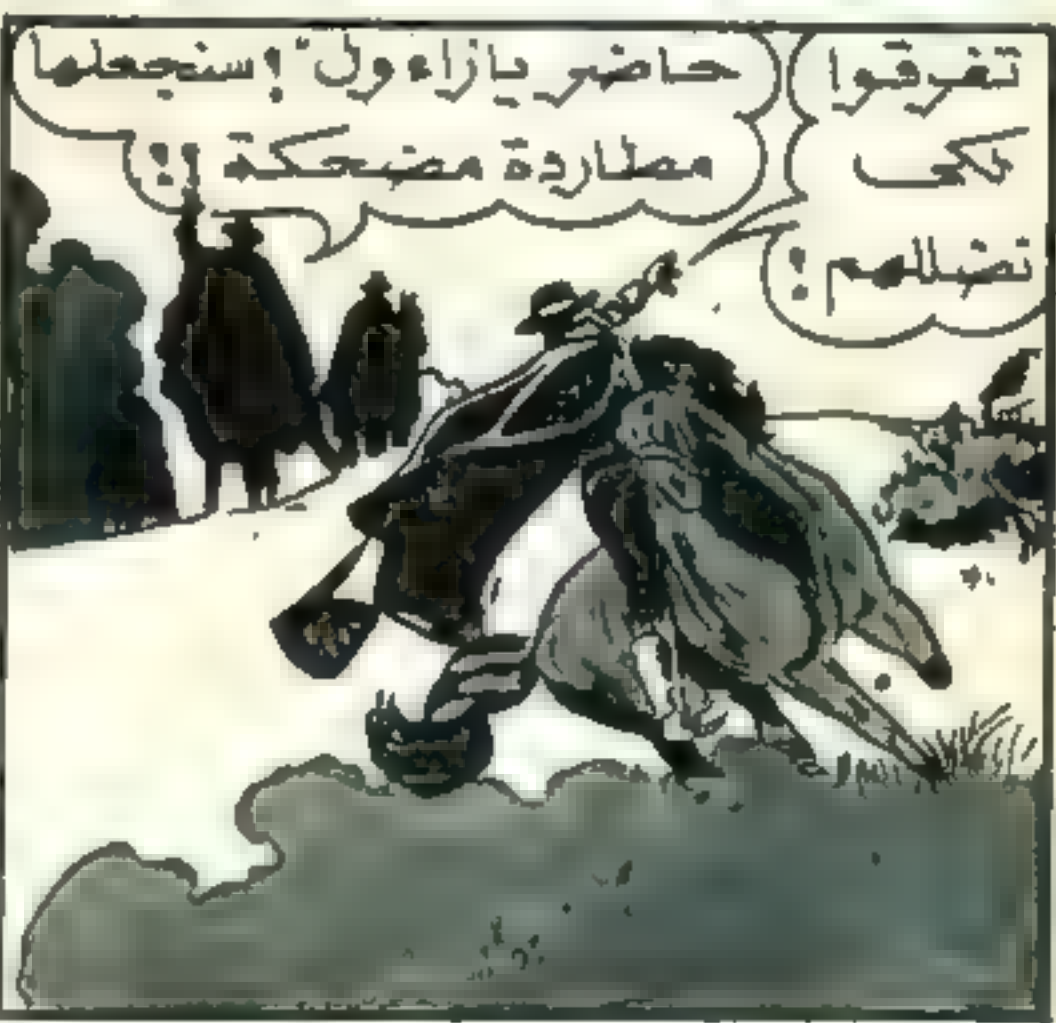 تفرقوا
لكى
نضللهم !
حاضر يازاءول ! سنجعلها
مطاردة مضحكة !!